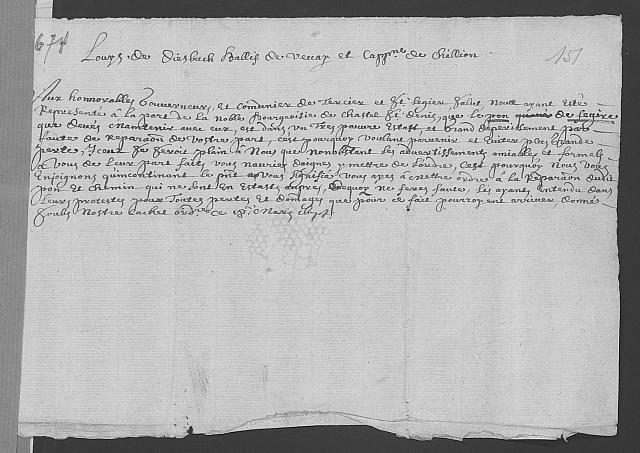 674
Louys de Diesbach Ballif de Vevay et Cappne de Chillion
151
Aux honnorables Gouverneur, et comunier de Tercier et St Legier, salut, Nous ayant esté
Representé à la part de la Noble Bourgeoisie de Chastel St Denis, que le pon de fegire
que devés maintenir avec eux, est dans un Tres pauvre Estatt, et Grand deperissement par
faute de Reparaõn de Vostre part, cest pourquoy voulant parvenir et Eviter plus Grande
perte, Iceux se seroit plain à Nous que nonobstant les advertissement amiables et formels
à Vous de Leur part fait, vous nauriés Daignes y mettre de Lordre, Cest pourquoy Nous Vous
Enjoignons quincontinant le pnt à Vous signifié vous ayés à mettre ordre à la Reparaõn dudit
pon et chemin qui ne sont en Estatt deüe, dequoy ne feres faute, les ayans entendu dans
Leurs protestes pour toutes pertes et domages que pour ce fait pourroyent arriver, donné
soubs Nostre cachet ordre ce Mars